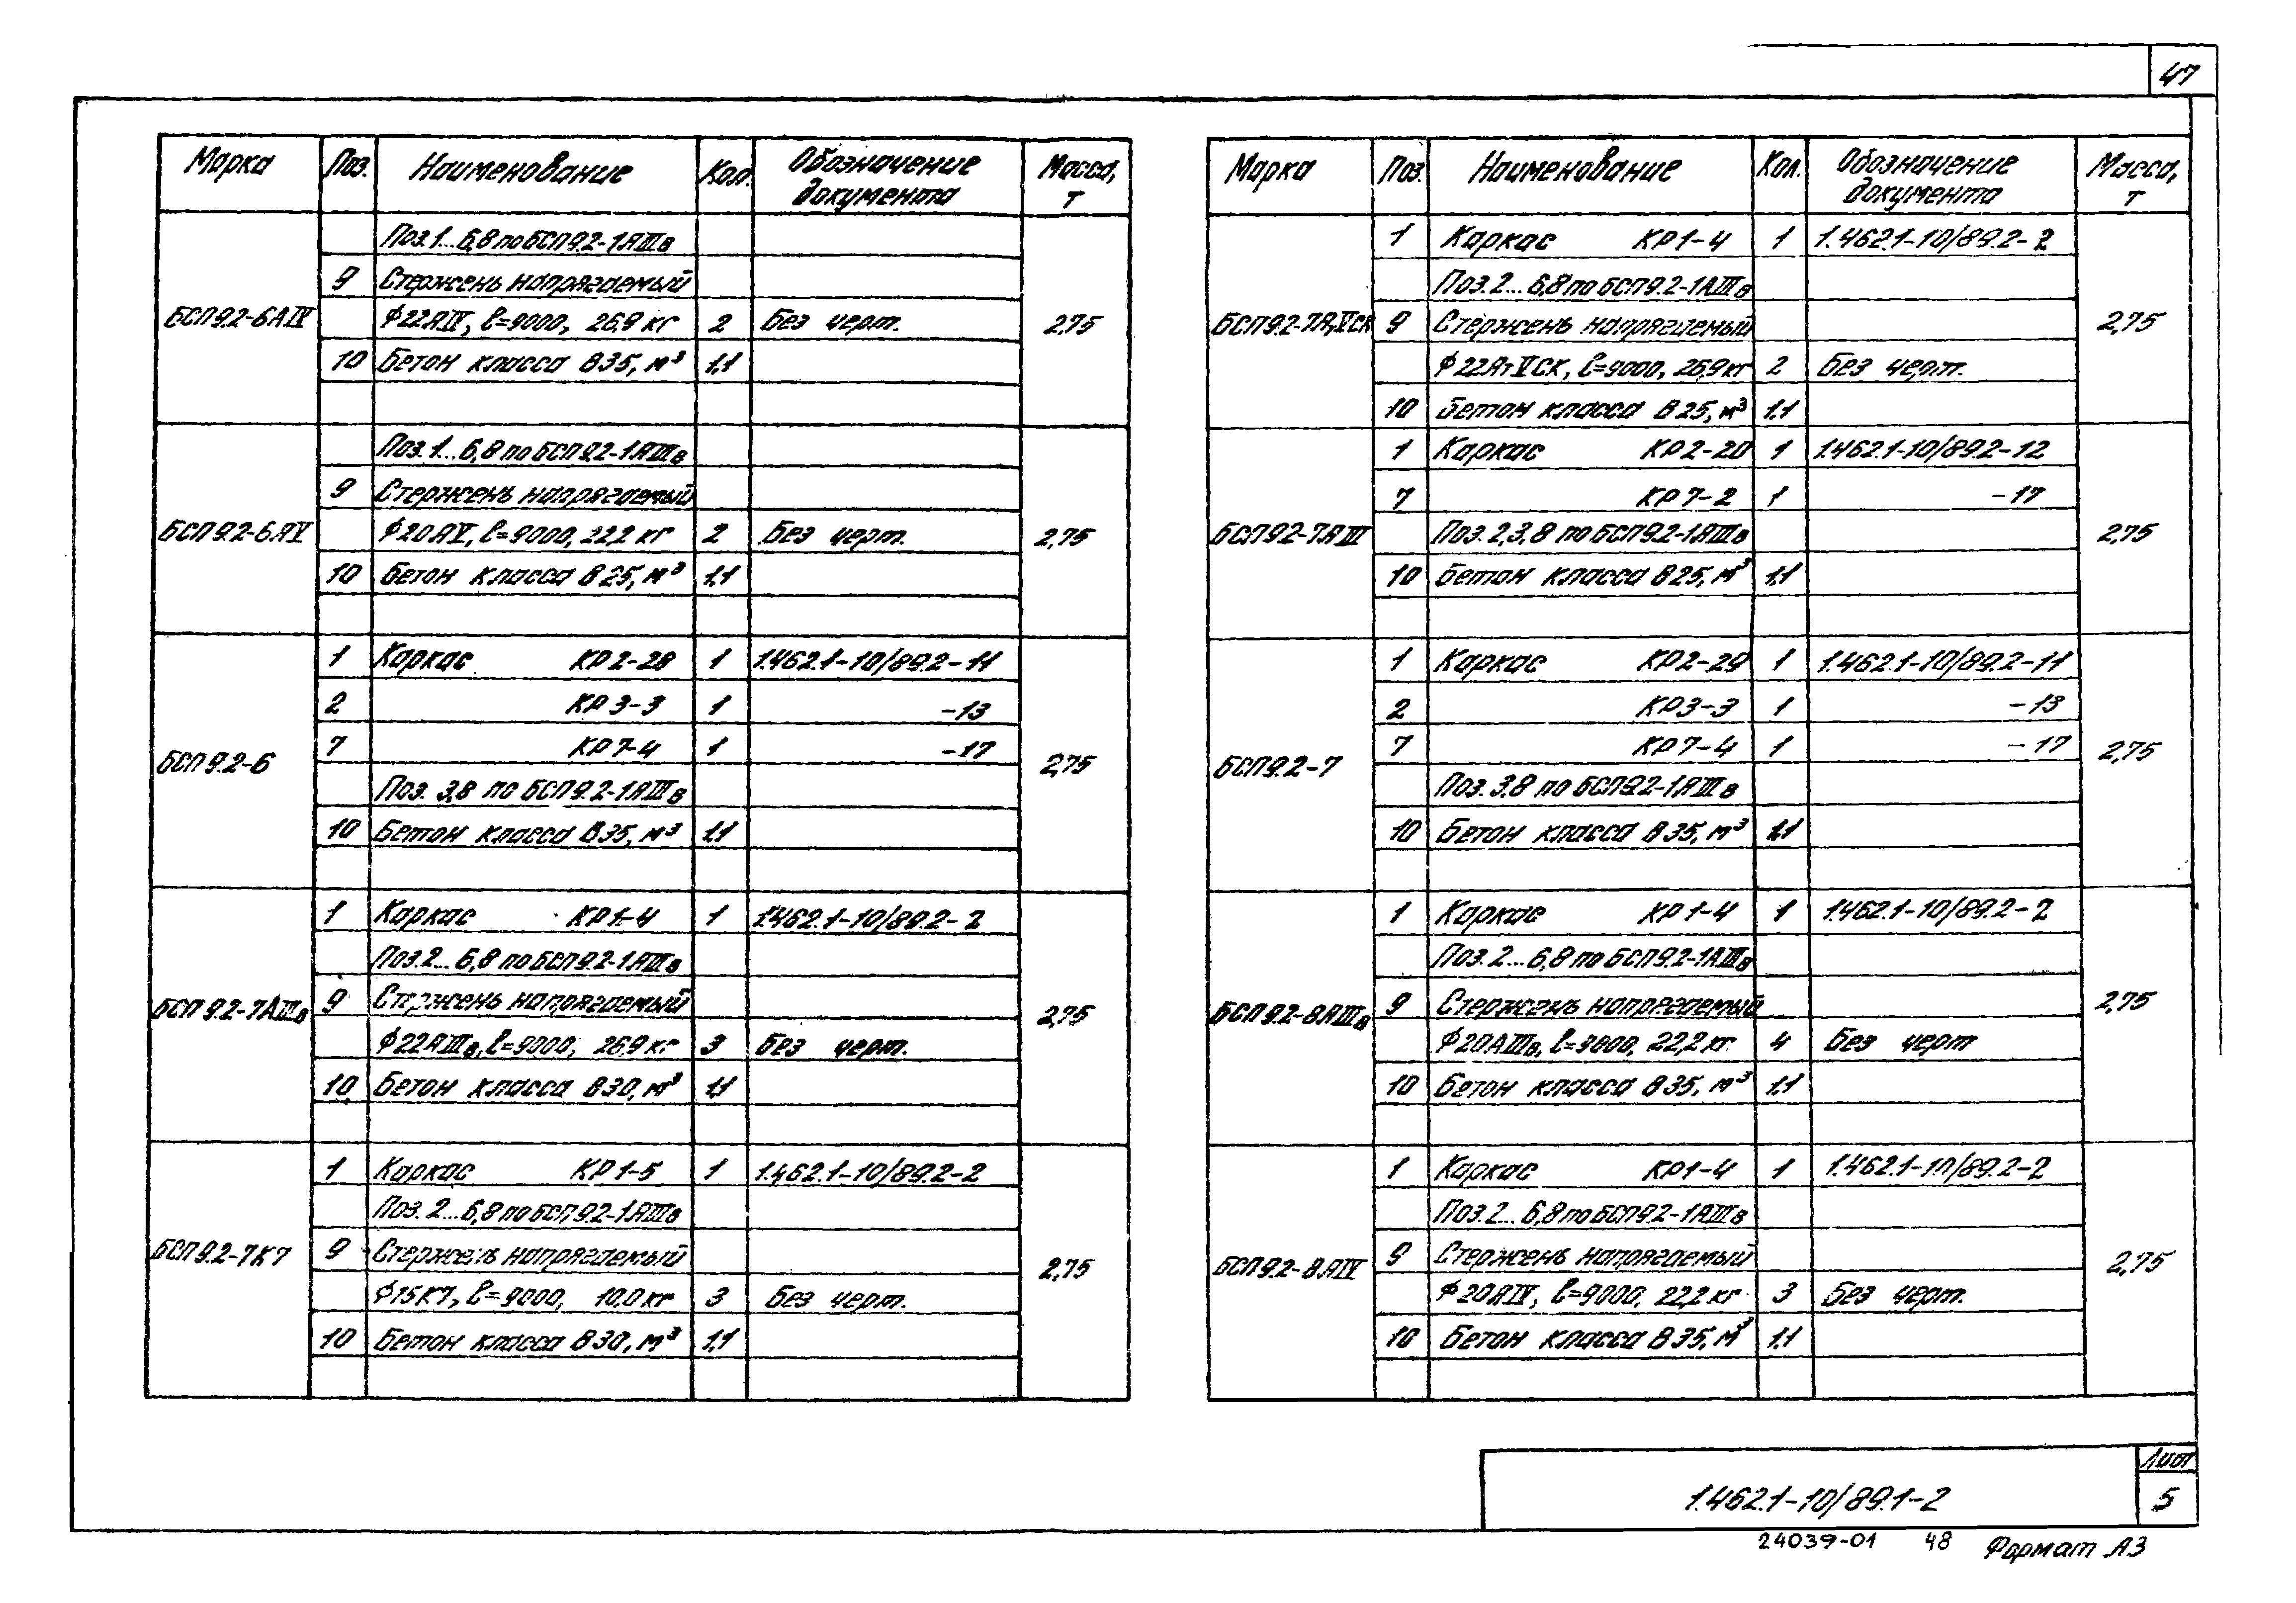 47
Марка Поз. Наименование Кол. Обозначение документа Масса, т
Поз.1...6,8 по БСП9.2-1АIIIв
9 Стержень напрягаемый
БСП9.2-6АIV ф22АIV, ℓ=9000, 26.9 кг 2 Без черт. 2,75
10 Бетон класса В35, м³ 1,1
Поз.1...6,8 по БСП9.2-1АIIIв
9 Стержень напрягаемый
БСП9.2-6АV ф20АV, ℓ=9000, 22,2 кг 2 Без черт. 2,75
10 Бетон класса В25, м³ 1,1
1 Каркас КР2-28 1 1.462.1-10/89.2-11
2 КР3-3 1 -13
7 КР7-4 1 -17
БСП9.2-6 2,75
Поз. 3,8 по БСП9.2-1АIIIв
10 Бетон класса В35, м³ 1,1
1 Каркас КР1-4 1 1.462.1-10/89.2-2
Поз.2...6,8 по БСП9.2-1АIIIв
БСП9.2-7АIIIв 9 Стержень напрягаемый 2,75
ф22АIIIв, ℓ=9000, 26,9 кг 3 Без черт.
10 Бетон класса В30, м³ 1,1
1 Каркас КР1-5 1 1.462.1-10/89.2-2
Поз. 2...6,8 по БСП9.2-1АIIIв
БСП9.2-7К7 9 Стержень напрягаемый 2,75
ф15К7, ℓ=9000, 10,0 кг 3 Без черт.
10 Бетон класса В30, м³ 1,1
Марка Поз. Наименование Кол. Обозначение документа Масса, т
1 Каркас КР1-4 1 1.462.1-10/89.2-2
Поз.2...6,8 по БСП9.2-1АIIIв
БСП9.2-7АтVСК 9 Стержень напрягаемый 2,75
ф22АтVСК, ℓ=9000, 26,9 кг 2 Без черт.
10 Бетон класса В25, м³ 1,1
1 Каркас КР2-20 1 1.462.1-10/89.2-12
7 КР7-2 1 -17
БСП9.2-7АIII Поз. 2,3,8 по БСП9.2-1АIIIв 2,75
10 Бетон класса В25, м³ 1,1
1 Каркас КР2-29 1 1.462.1-10/89.2-11
2 КР3-3 1 -13
7 КР7-4 1 -17
БСП9.2-7 2,75
Поз. 3,8 по БСП9.2-1АIIIв
10 Бетон класса В35, м³ 1,1
1 Каркас КР1-4 1 1.462.1-10/89.2-2
Поз. 2...6,8 по БСП9.2-1АIIIв
БСП9.2-8АIIIв 9 Стержень напрягаемый 2,75
ф20АIIIв, ℓ=9000, 22,2 кг 4 Без черт
10 Бетон класса В35, м³ 1,1
1 Каркас КР1-4 1 1.462.1-10/89.2-2
Поз. 2...6,8 по БСП9.2-1АIIIв
БСП9.2-8АIV 9 Стержень напрягаемый 2,75
ф20АIV, ℓ=9000, 22,2 кг 3 Без черт.
10 Бетон класса В35, м³ 1,1
1.462.1-10/89.1-2
Лист
5
24039-01 48 Формат А3